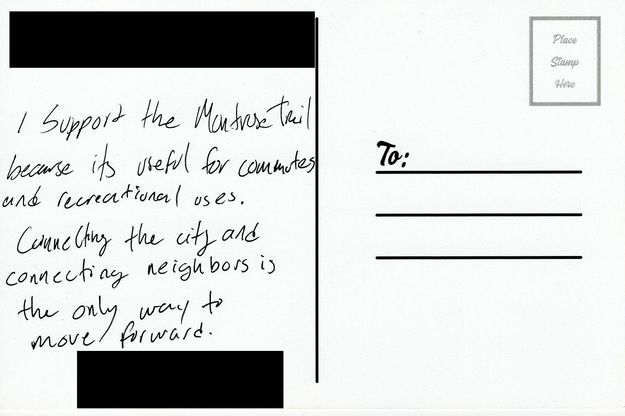 I support the Montrose Trail
because its useful for commutes
and recreational uses.
Connecting the city and
connecting neighbors is
the only way to
move forward.
Place
Stamp
Here
To: